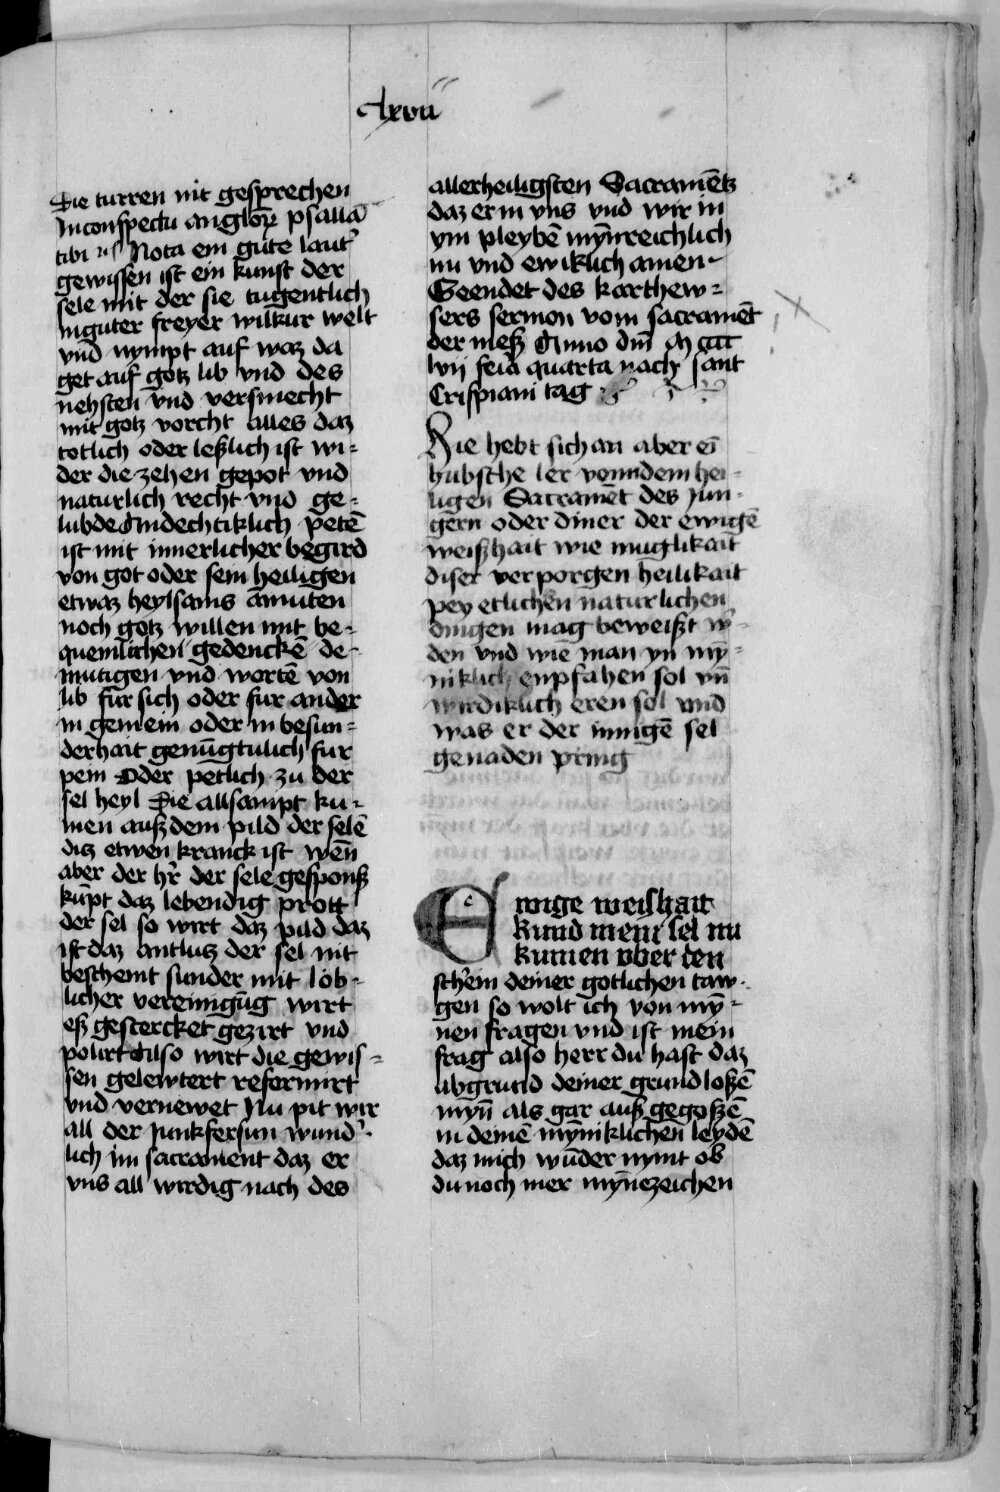 lxvii
Die turren nit gesprechen
In conspectu anglorꝝ psallā
tibi ⁊c̄ Nota ein gute laut̄
gewissen ist ein kunst der
sele mit der sie tugentlich
in guter freyer wilkur welt
vnd nympt auf waz da
get auf gotz lib vnd des
nehsten vnd versmecht
mit gotz vorcht alles daz
totlich oder leßlich ist wi-
der die zehen gepot vnd
naturlich recht vnd ge-
lubde Andechtiklich petē
ist mit innerlicher begird
von got oder sein heiligen
etwaz heylsams āmuten
noch gotz willen mit be-
quemlichen gedenckē de-
mutigen vnd wortē von
lib fur sich oder fur ander
in gemein oder in besun-
derhait genūgtulich fur
pein Oder petlich zu der
sel heyl Die allsampt ku-
men auß dem pild der selē
diz etwen kranck ist wēn
aber der hr̄ der sele gesponß
kūpt daz lebendig prott
der sel so wirt daz pild daz
ist daz antlutz der sel nit
beschemt sunder mit lob-
licher vereinigūg wirt
eß gestercket gezirt vnd
polirt Also wirt die gewis-
sen gelewtert reformirt
vnd vernewet Nu pit wir
all der Junkfersun wund̄-
lich im sacrament daz er
vns all wirdig nach des
allerheiligsten Sacramētz
daz er in vns vnd wir in
ym pleybē mȳnreichlich
nu vnd ewiklich amen
Geendet des karthew-
sers sermon vom sacramēt
der meß Anno dm̄ M cccc
lvij feīa quarta nach sant
Crispiani tag
Hie hebt sich an aber eī
hubsche ler von dem hei-
ligen Sacramēt des Jun-
gern oder diner der ewigē
weißhait wie muglikait
diser verporgen heilikait
pey etlichen naturlichen
dingen mag beweißt w̄-
den vnd wie man yn mȳ-
niklich enpfahen sol vn̄
wirdiklich eren sol vnd
was er der innigē sel
genaden pring
Ewige weishait
kund mein sel nu
kumen vber den
schein deiner gotlichen taw-
gen so wolt ich von mȳ-
nen fragen vnd ist mein
frag also herr du hast daz
abgrund deiner grundloßē
mȳn als gar auß gegoßē
in deinē mȳniklichen leydē
daz mich wūder nymt ob
du noch mer mȳnezeichen